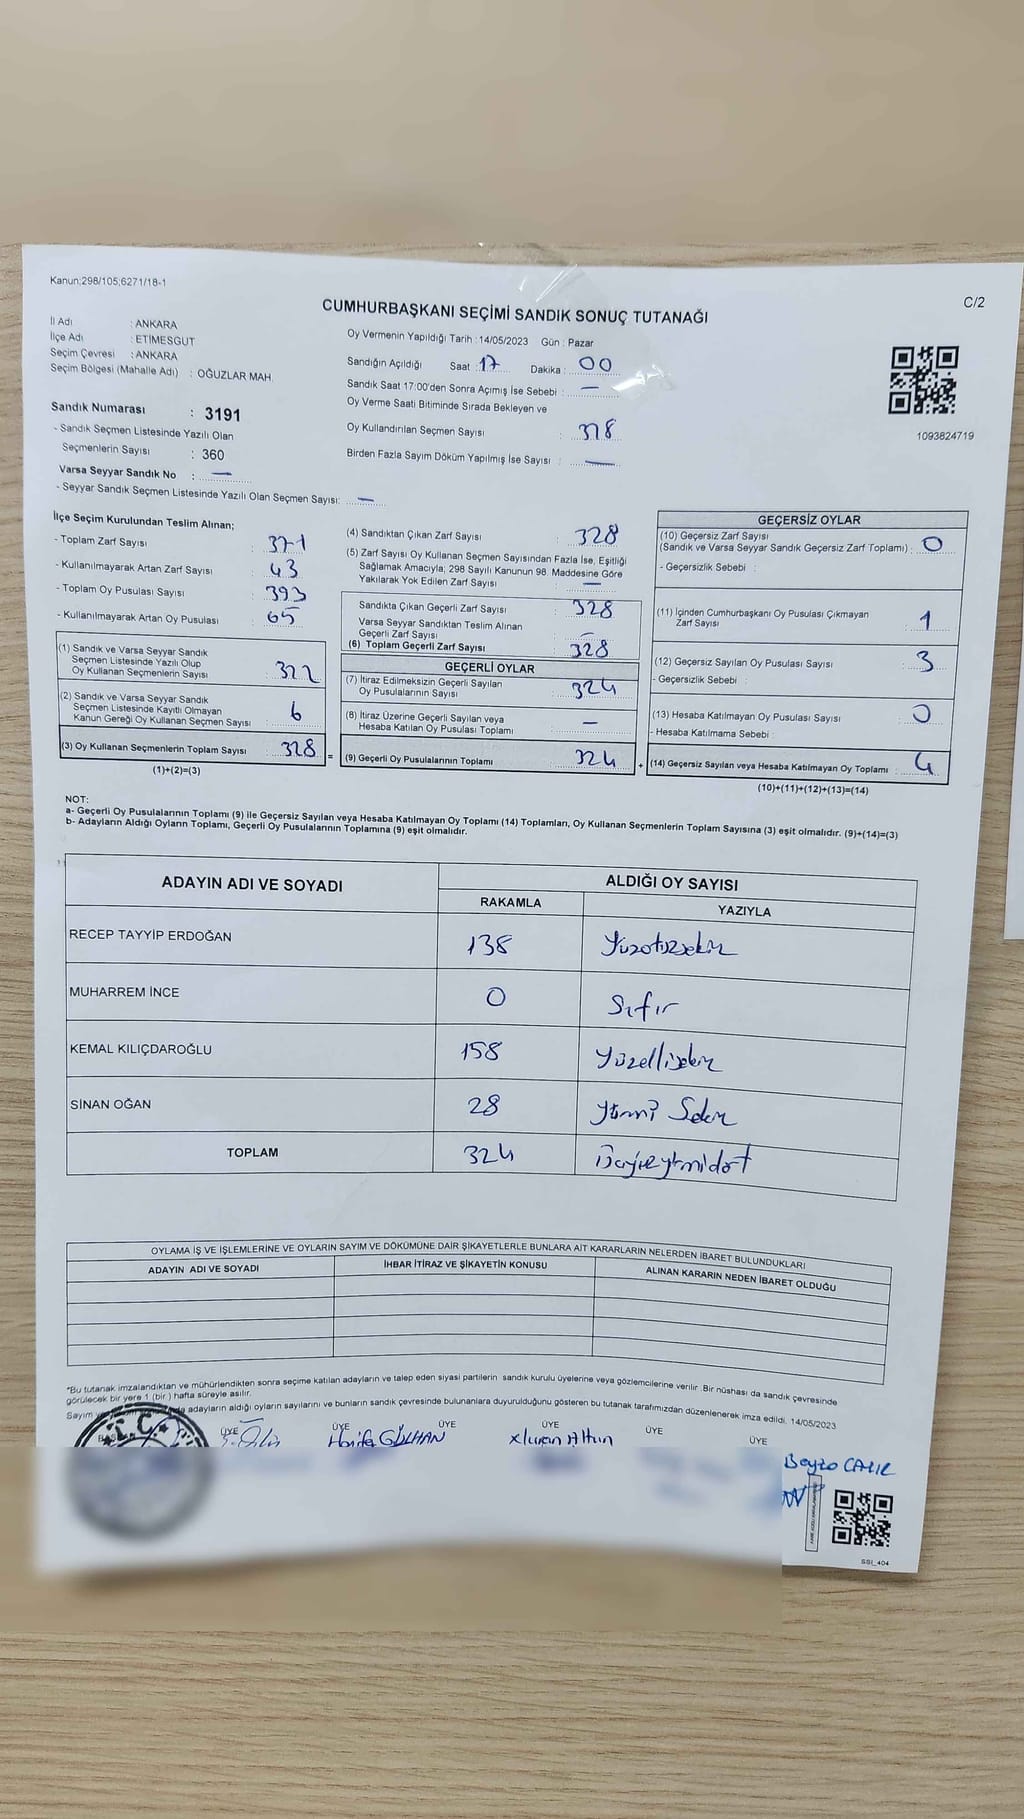 Kanun;298/105;6271/18-1
C/2
CUMHURBAŞKANI SEÇİMİ SANDIK SONUÇ TUTANAĞI
İl Adı : ANKARA
İlçe Adı : ETİMESGUT
Seçim Çevresi : ANKARA
Seçim Bölgesi (Mahalle Adı) : OĞUZLAR MAH.
Sandık Numarası : 3191
- Sandık Seçmen Listesinde Yazılı Olan
Seçmenlerin Sayısı : 360
Varsa Seyyar Sandık No : —
- Seyyar Sandık Seçmen Listesinde Yazılı Olan Seçmen Sayısı: —
Oy Vermenin Yapıldığı Tarih : 14/05/2023 Gün : Pazar
Sandığın Açıldığı Saat : 17 Dakika : 00
Sandık Saat 17:00'den Sonra Açımış İse Sebebi : —
Oy Verme Saati Bitiminde Sırada Bekleyen ve
Oy Kullandırılan Seçmen Sayısı : 328
Birden Fazla Sayım Döküm Yapılmış İse Sayısı : —
1093824719
İlçe Seçim Kurulundan Teslim Alınan;
- Toplam Zarf Sayısı : 371
- Kullanılmayarak Artan Zarf Sayısı : 43
- Toplam Oy Pusulası Sayısı : 393
- Kullanılmayarak Artan Oy Pusulası : 65
(1) Sandık ve Varsa Seyyar Sandık
Seçmen Listesinde Yazılı Olup
Oy Kullanan Seçmenlerin Sayısı : 322
(2) Sandık ve Varsa Seyyar Sandık
Seçmen Listesinde Kayıtlı Olmayan
Kanun Gereği Oy Kullanan Seçmen Sayısı : 6
(3) Oy Kullanan Seçmenlerin Toplam Sayısı : 328
(1)+(2)=(3)
(4) Sandıktan Çıkan Zarf Sayısı : 328
(5) Zarf Sayısı Oy Kullanan Seçmen Sayısından Fazla İse, Eşitliği
Sağlamak Amacıyla; 298 Sayılı Kanunun 98. Maddesine Göre
Yakılarak Yok Edilen Zarf Sayısı : —
Sandıkta Çıkan Geçerli Zarf Sayısı : 328
Varsa Seyyar Sandıktan Teslim Alınan
Geçerli Zarf Sayısı : —
(6) Toplam Geçerli Zarf Sayısı : 328
GEÇERLİ OYLAR
(7) İtiraz Edilmeksizin Geçerli Sayılan
Oy Pusulalarının Sayısı : 324
(8) İtiraz Üzerine Geçerli Sayılan veya
Hesaba Katılan Oy Pusulası Toplamı : —
= (9) Geçerli Oy Pusulalarının Toplamı : 324
GEÇERSİZ OYLAR
(10) Geçersiz Zarf Sayısı
(Sandık ve Varsa Seyyar Sandık Geçersiz Zarf Toplamı) : 0
- Geçersizlik Sebebi :
(11) İçinden Cumhurbaşkanı Oy Pusulası Çıkmayan
Zarf Sayısı : 1
(12) Geçersiz Sayılan Oy Pusulası Sayısı : 3
- Geçersizlik Sebebi :
(13) Hesaba Katılmayan Oy Pusulası Sayısı : 0
- Hesaba Katılmama Sebebi :
+ (14) Geçersiz Sayılan veya Hesaba Katılmayan Oy Toplamı : 4
(10)+(11)+(12)+(13)=(14)
NOT:
a- Geçerli Oy Pusulalarının Toplamı (9) ile Geçersiz Sayılan veya Hesaba Katılmayan Oy Toplamı (14) Toplamları, Oy Kullanan Seçmenlerin Toplam Sayısına (3) eşit olmalıdır. (9)+(14)=(3)
b- Adayların Aldığı Oyların Toplamı, Geçerli Oy Pusulalarının Toplamına (9) eşit olmalıdır.
ADAYIN ADI VE SOYADI ALDIĞI OY SAYISI
RAKAMLA YAZIYLA
RECEP TAYYİP ERDOĞAN 138 Yüzotuzsekiz
MUHARREM İNCE 0 Sıfır
KEMAL KILIÇDAROĞLU 158 Yüzellisekiz
SİNAN OĞAN 28 Yirmi Sekiz
TOPLAM 324 Üçyüzyirmidört
OYLAMA İŞ VE İŞLEMLERİNE VE OYLARIN SAYIM VE DÖKÜMÜNE DAİR ŞİKAYETLERLE BUNLARA AİT KARARLARIN NELERDEN İBARET BULUNDUKLARI
ADAYIN ADI VE SOYADI İHBAR İTİRAZ VE ŞİKAYETİN KONUSU ALINAN KARARIN NEDEN İBARET OLDUĞU
*Bu tutanak imzalandıktan ve mühürlendikten sonra seçime katılan adayların ve talep eden siyasi partilerin sandık kurulu üyelerine veya gözlemcilerine verilir. Bir nüshası da sandık çevresinde
görülecek bir yere 1 (bir) hafta süreyle asılır.
Sayım ve adayların aldığı oyların sayılarını ve bunların sandık çevresinde bulunanlara duyurulduğunu gösteren bu tutanak tarafımızdan düzenlenerek imza edildi. 14/05/2023
T.C.
ÜYE ÜYE ÜYE ÜYE ÜYE ÜYE
GÜLHAN Altun
SSI_404